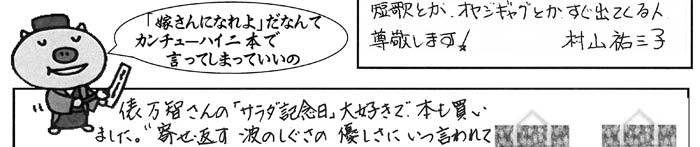 「嫁さんになれよ」だなんて
カンチューハイ二本で
言ってしまっていいの
短歌とか、オヤジギャグとか、すぐ出てくる人
尊敬します！ 村山祐三子
俵万智さんの「サラダ記念日」大好きで、本も買い
ました。“寄せ返す 波のしぐさの 優しさに いつ言われて